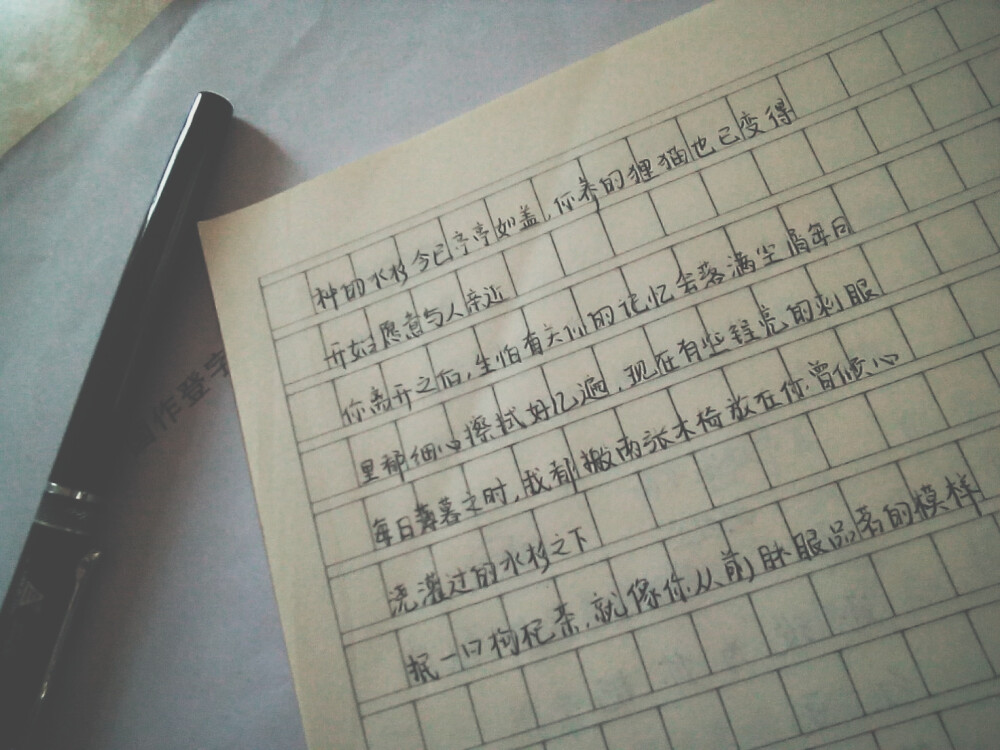 种的水杉今已亭亭如盖,你养的狸猫也已变得
开始愿意与人亲近
你离开之后,生怕有关你的记忆会落满尘屑每日
里都细心擦拭好几遍,现在有些锃亮的刺眼
每日薄暮之时,我都搬两张木椅放在你曾倾心
浇灌过的水杉之下
抿一口枸杞茶,就像你从前眯眼品茗的模样
作登字